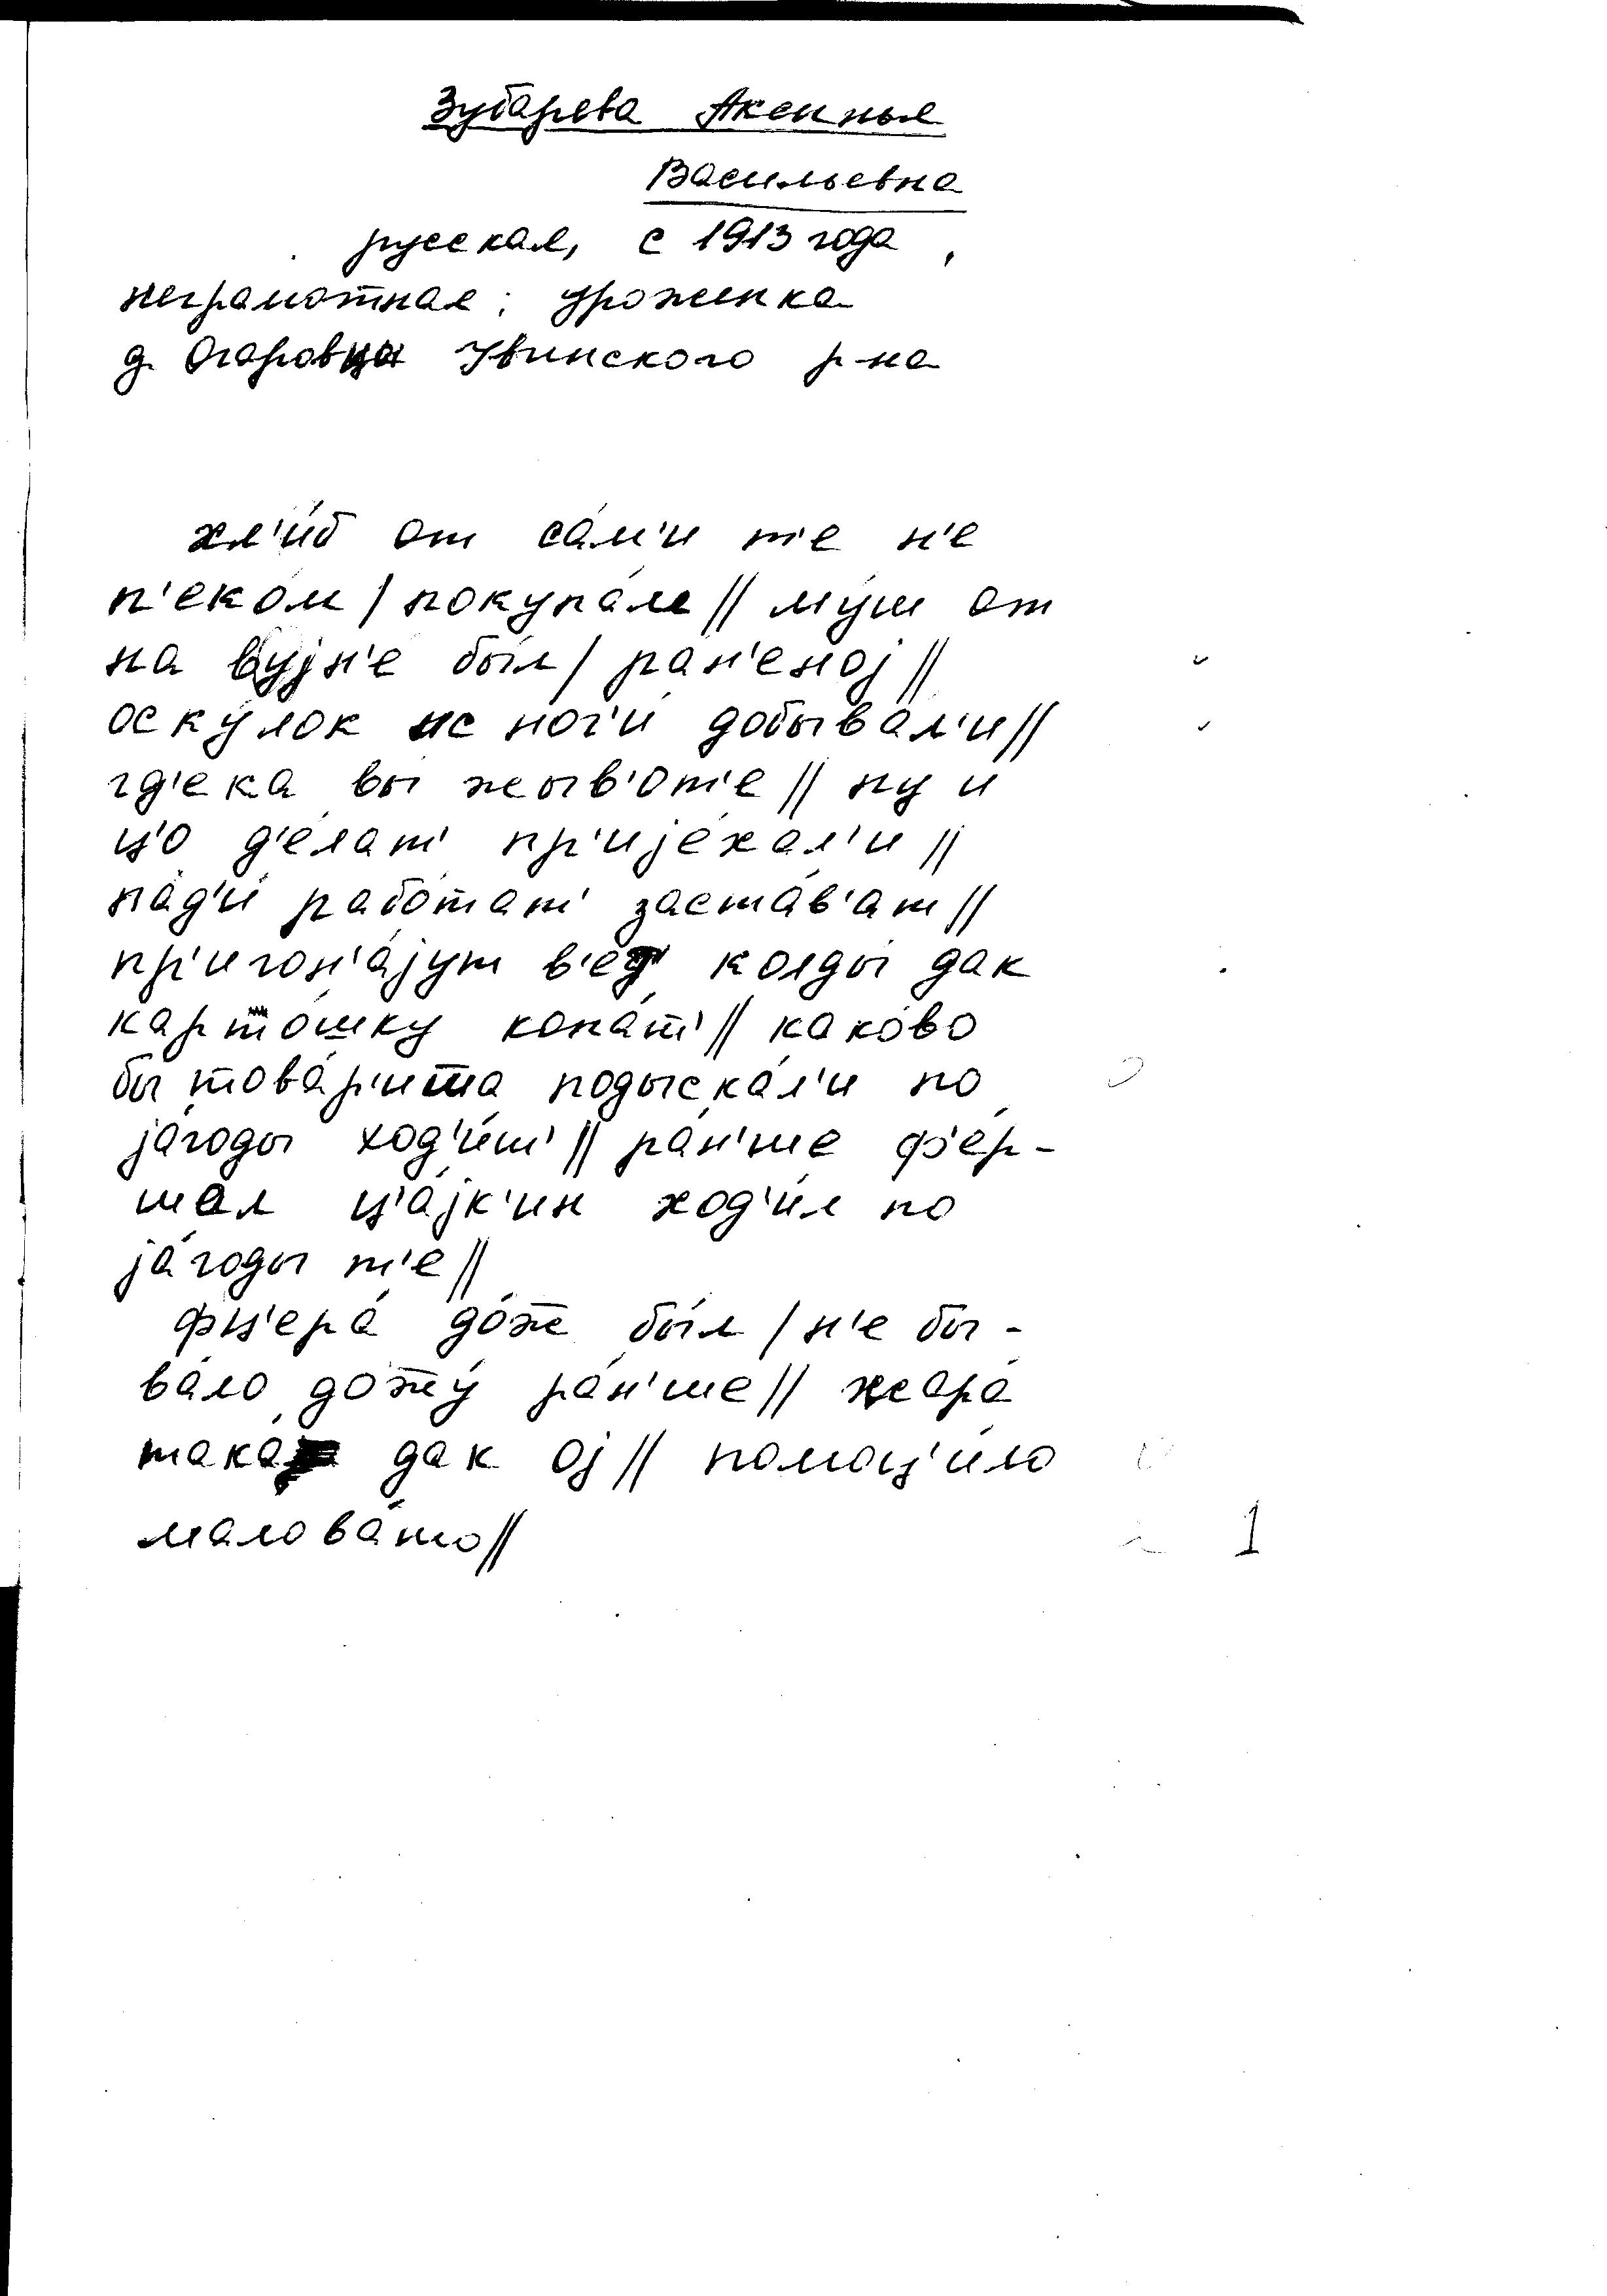 Зубарева Аксинья
Васильевна
русская, с 1913 года,
неграмотная; уроженка
д. Огаровцы Увинского р-на
хл'и́б от са́м'и т'е н'е
п'еко́м / покупа́м // му́ш от
на вуjн'е́ бы́л / ра́н'еноj //
оску́лок ис ног'и́ добыва́л'и //
гд'ека вы́ жыв'о́т'е // ну и
ц'о д'е́лат' пр'иjе́хал'и //
па́д'и́ рабо́тат' заста́в'ат //
пр'игон'а́jут в'ед' колды́ дак
карто́шку копа́т' // како́во
бы това́р'ишша подыска́л'и по
jа́годы ход'и́т' // ра́н'ше ф'е́р-
шал ц'а́jк'ин ход'и́л по
jа́годы т'е //
фц'ера́ до́жж бы́л / н'е бы-
ва́ло дожжу́ ра́н'ше // жара́
така́ дак оj // помоц'и́ло
малова́то //
1